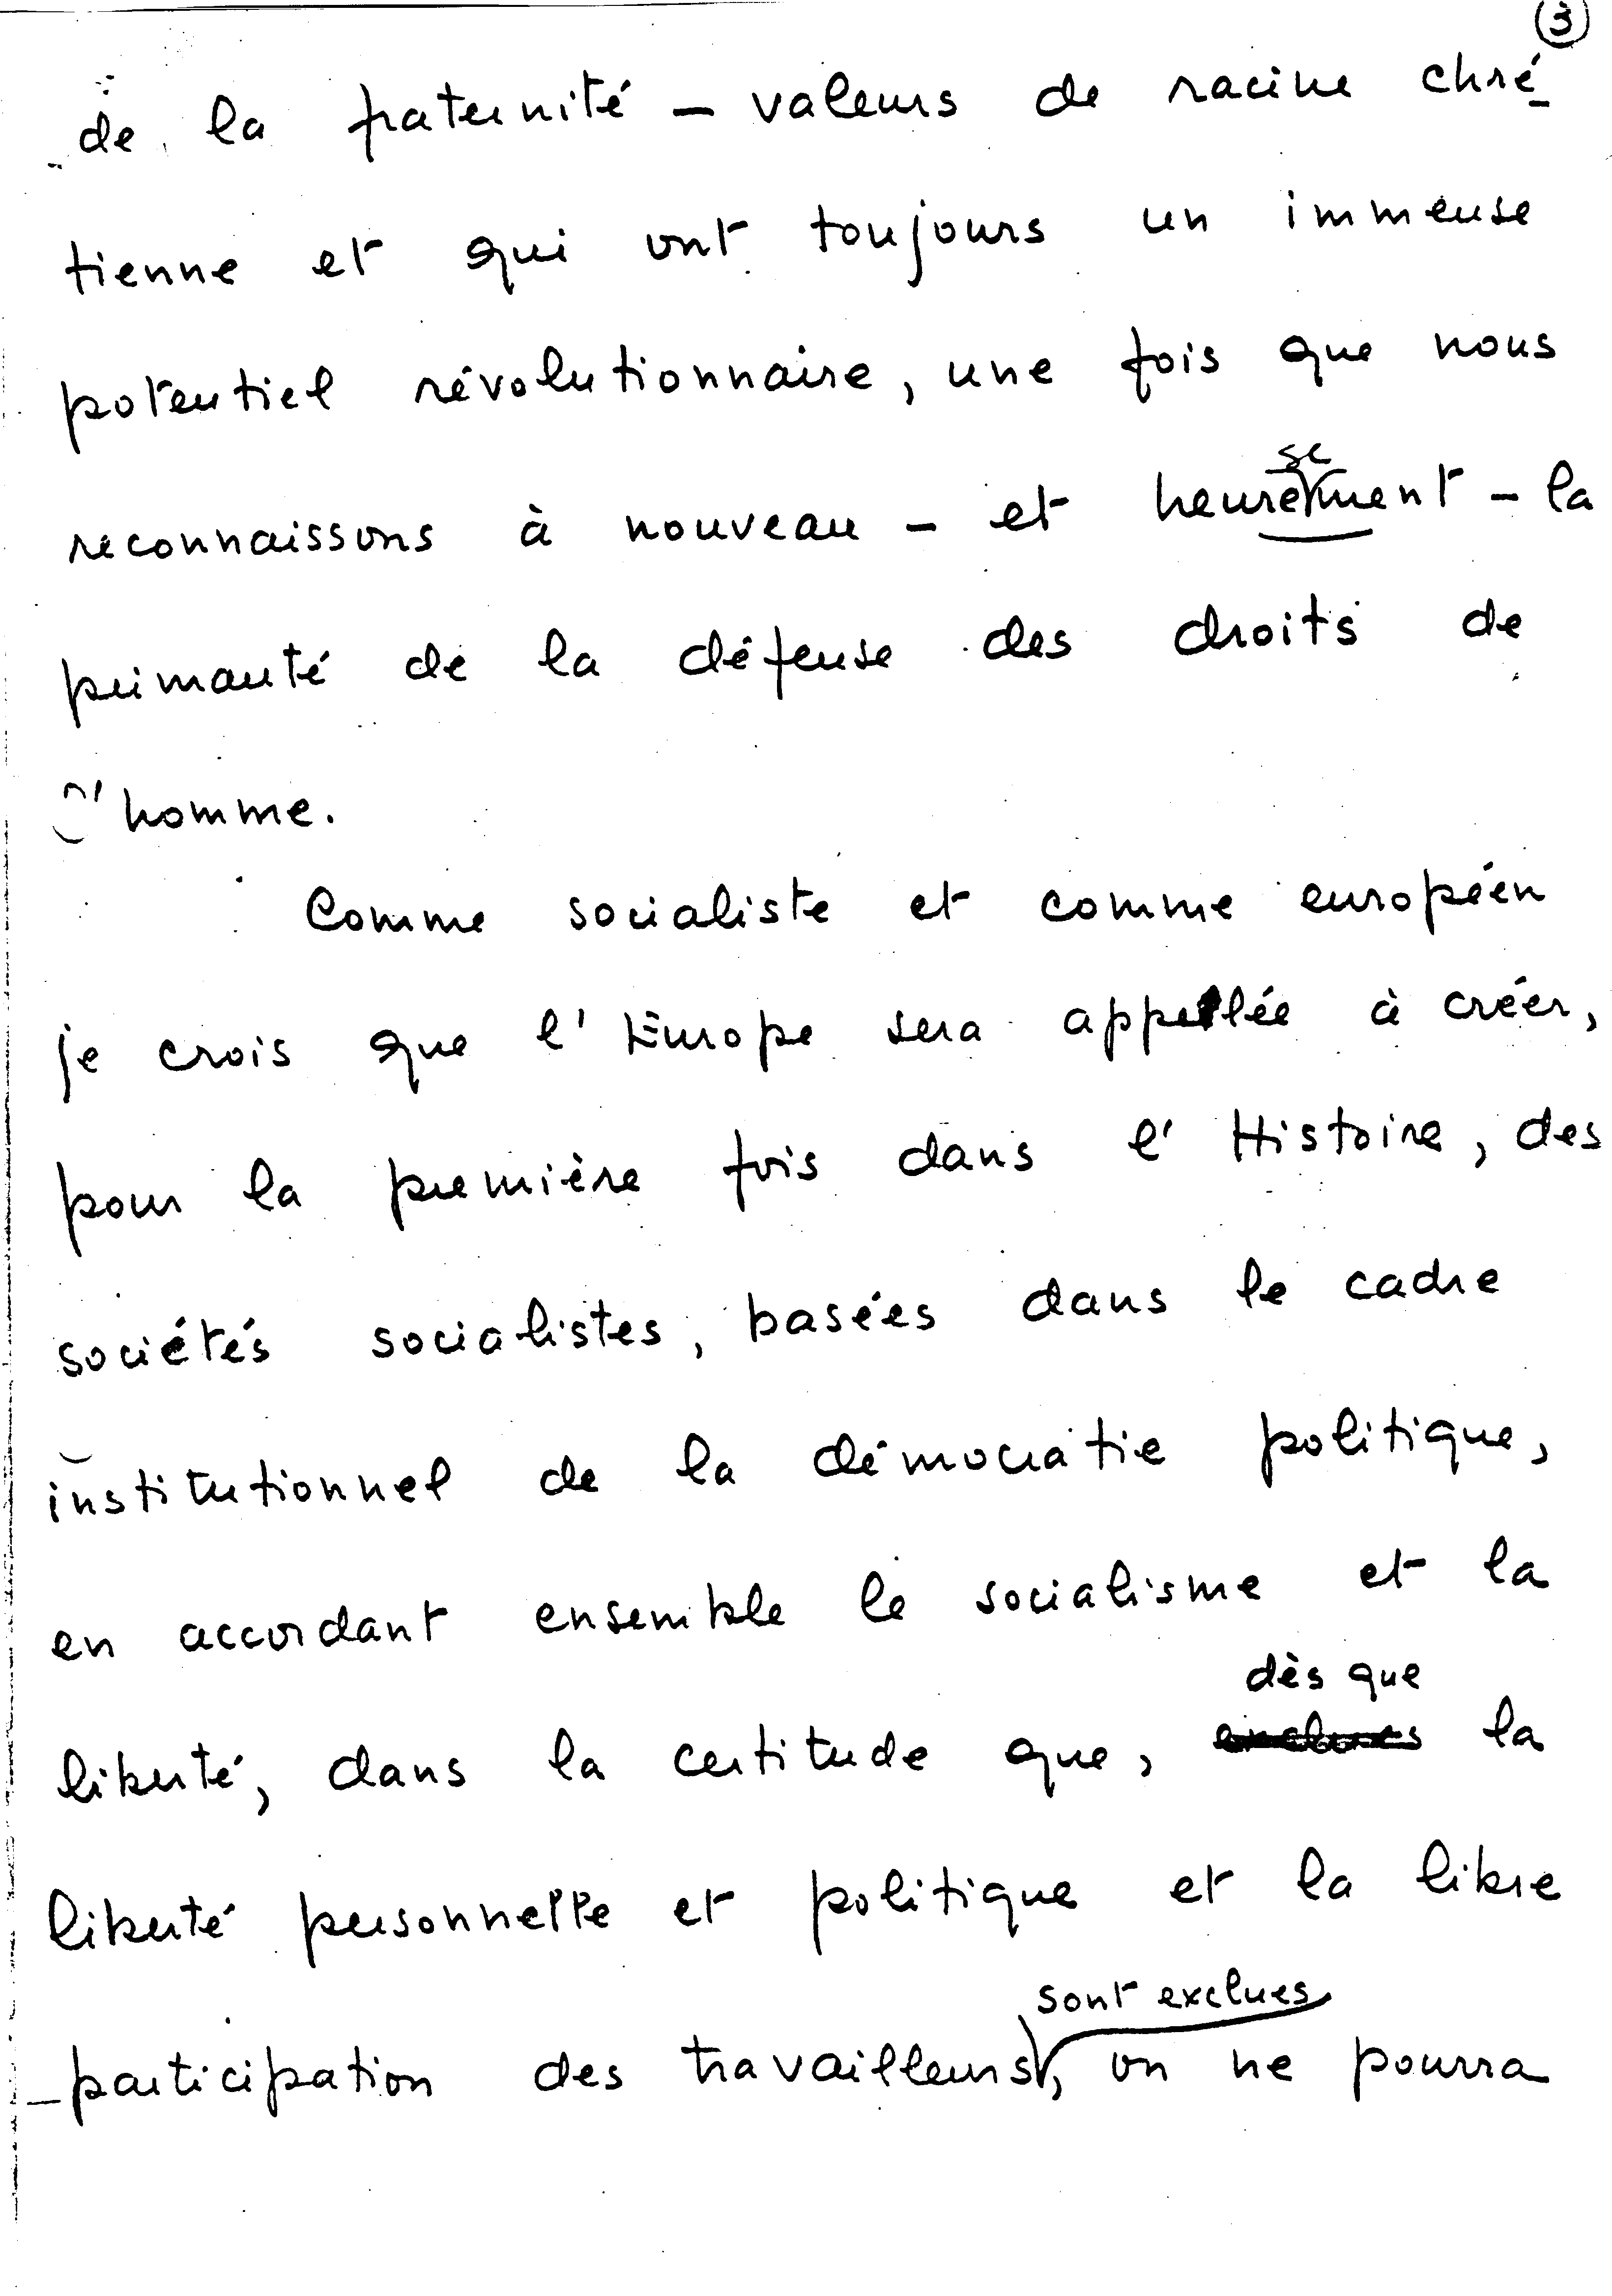 3
de la fraternité – valeurs de racine chré-
tienne et qui ont toujours un immense
potentiel révolutionnaire, une fois que nous
reconnaissons à nouveau – et heureusement – la
primauté de la défense des droits de
l'homme.
Comme socialiste et comme européen
je crois que l'Europe sera appellée à créer,
pour la première fois dans l'Histoire, des
sociétés socialistes, basées dans le cadre
institutionnel de la démocratie politique,
en accordant ensemble le socialisme et la
dès que
liberté, dans la certitude que, la
liberté personnelle et politique et la libre
sont exclues
participation des travailleurs, on ne pourra